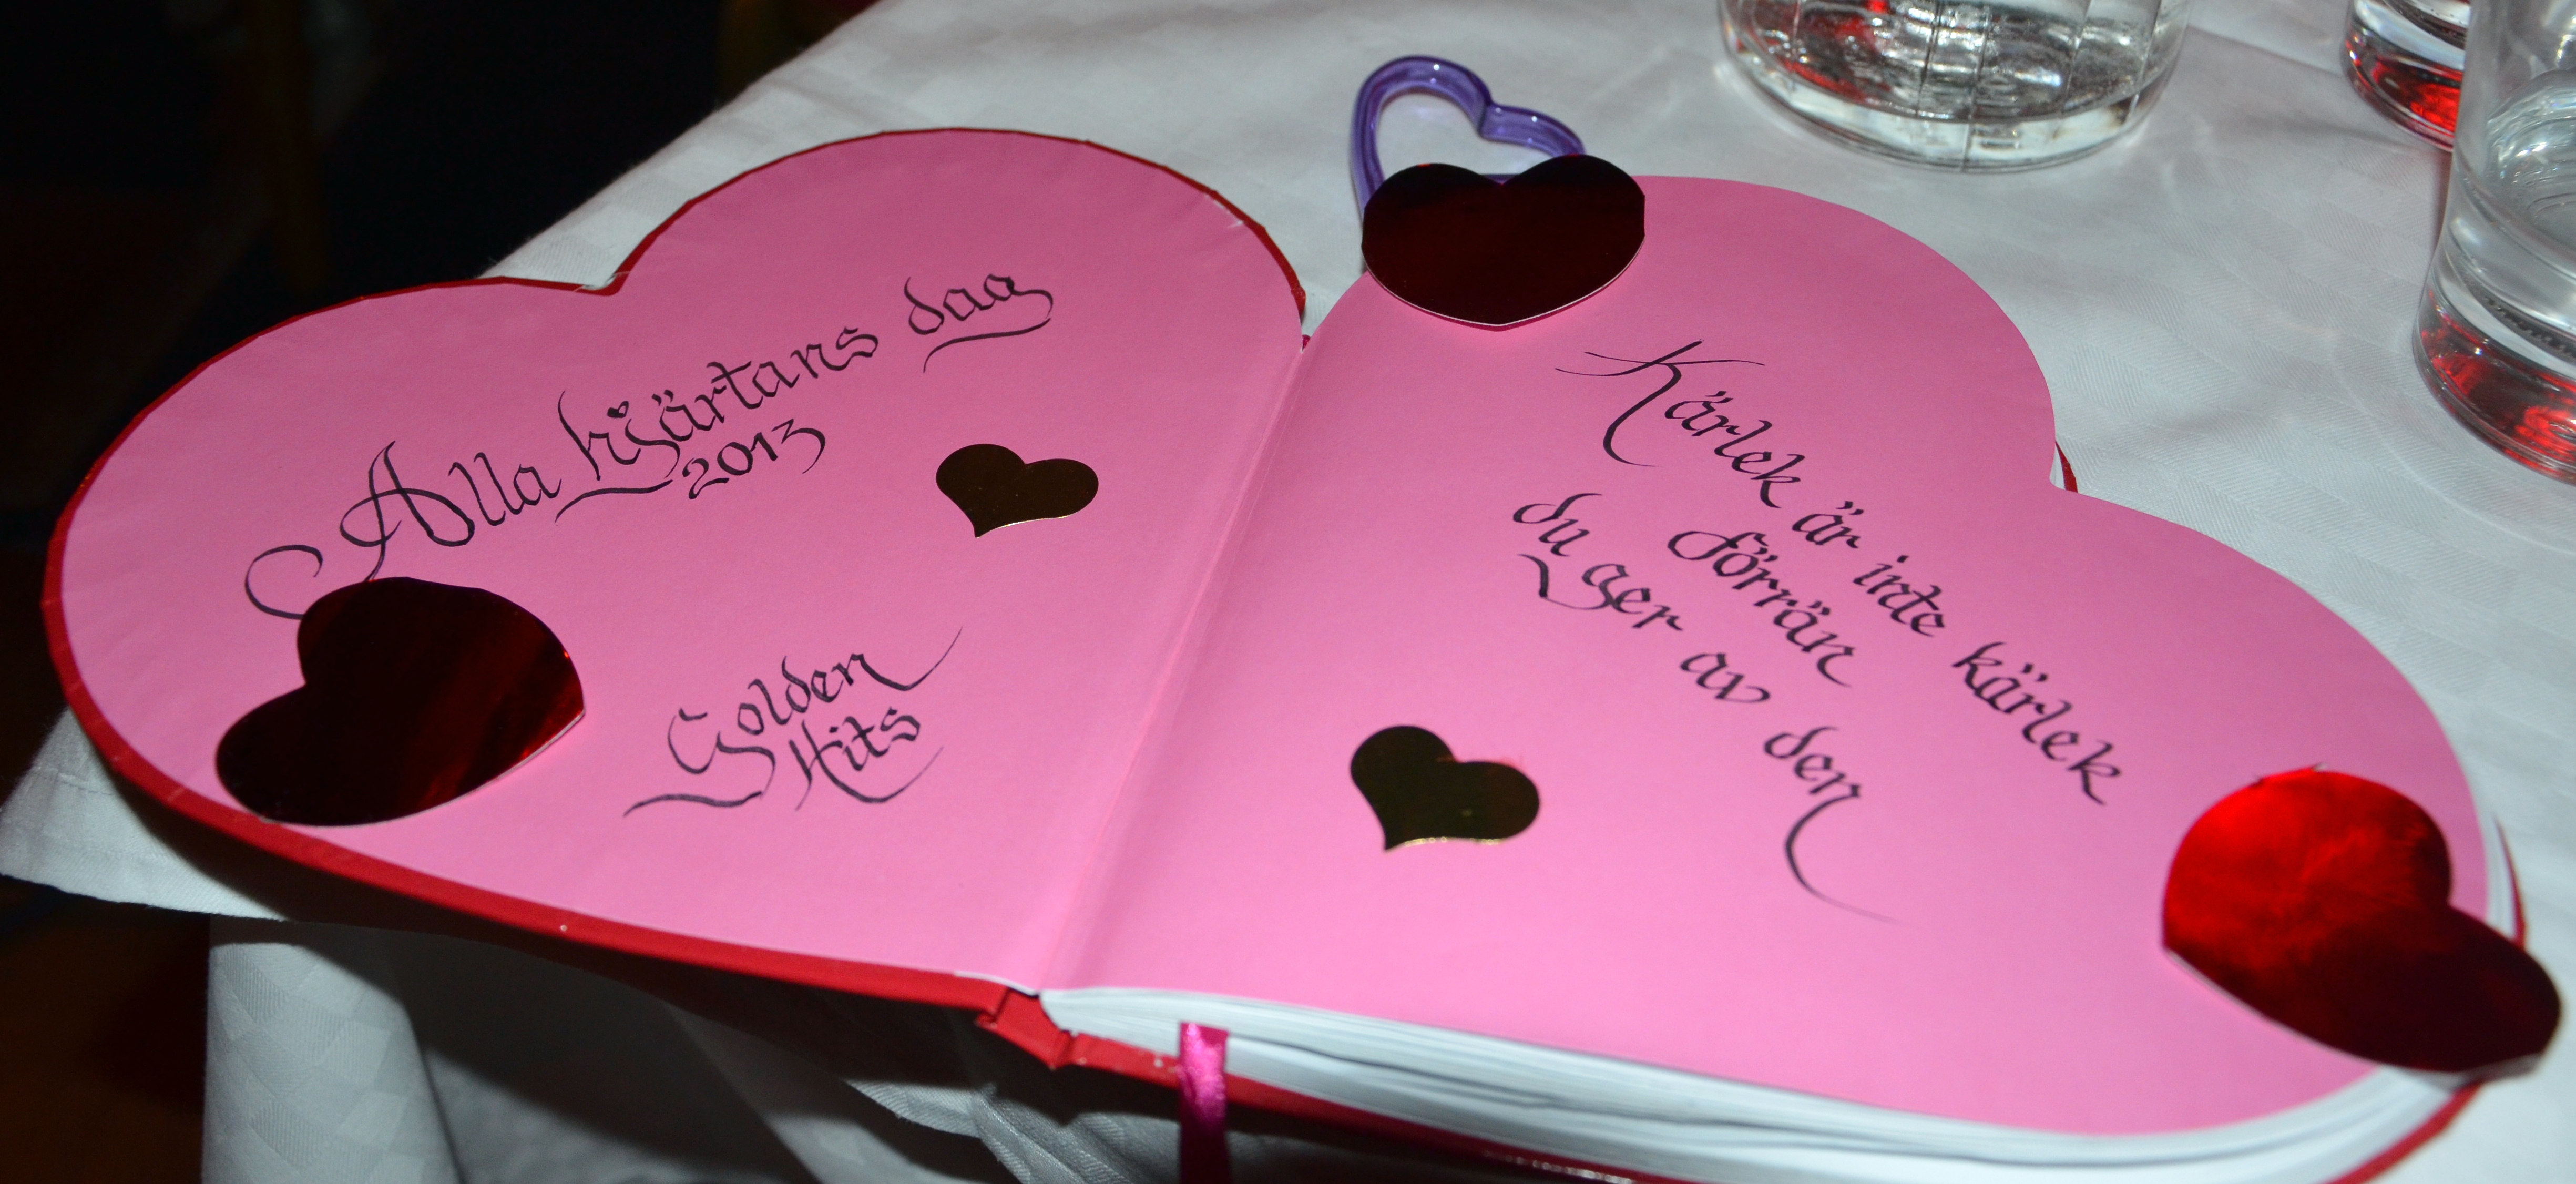 Alla hjärtans dag
2013
Golden
Hits
Kärlek är inte kärlek
förrän
du ger av den